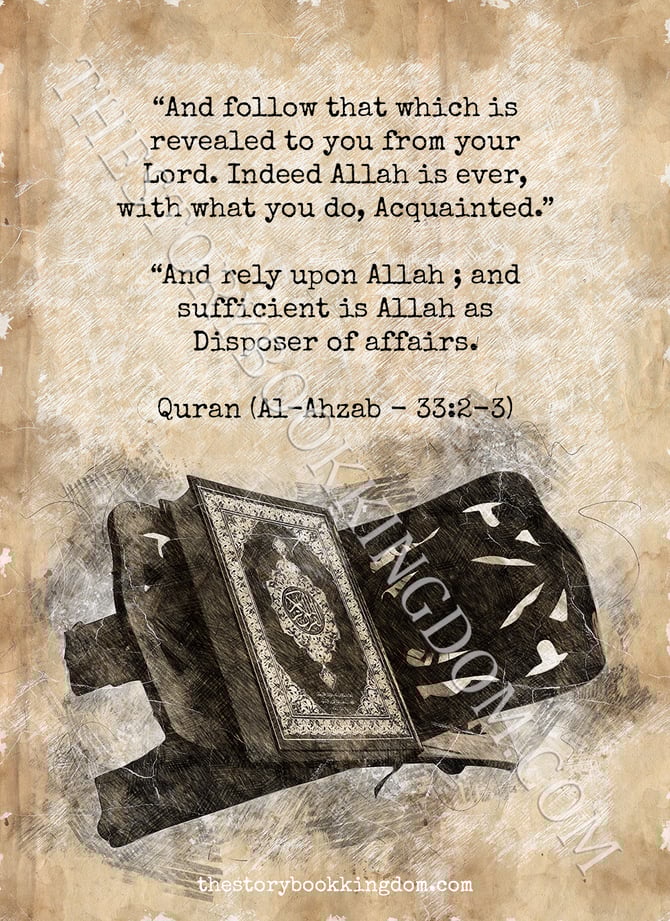 “And follow that which is
revealed to you from your
Lord. Indeed Allah is ever,
with what you do, Acquainted.”
“And rely upon Allah ; and
sufficient is Allah as
Disposer of affairs.
Quran (Al-Ahzab - 33:2-3)
THESTORYBOOKKINGDOM.COM
thestorybookkingdom.com